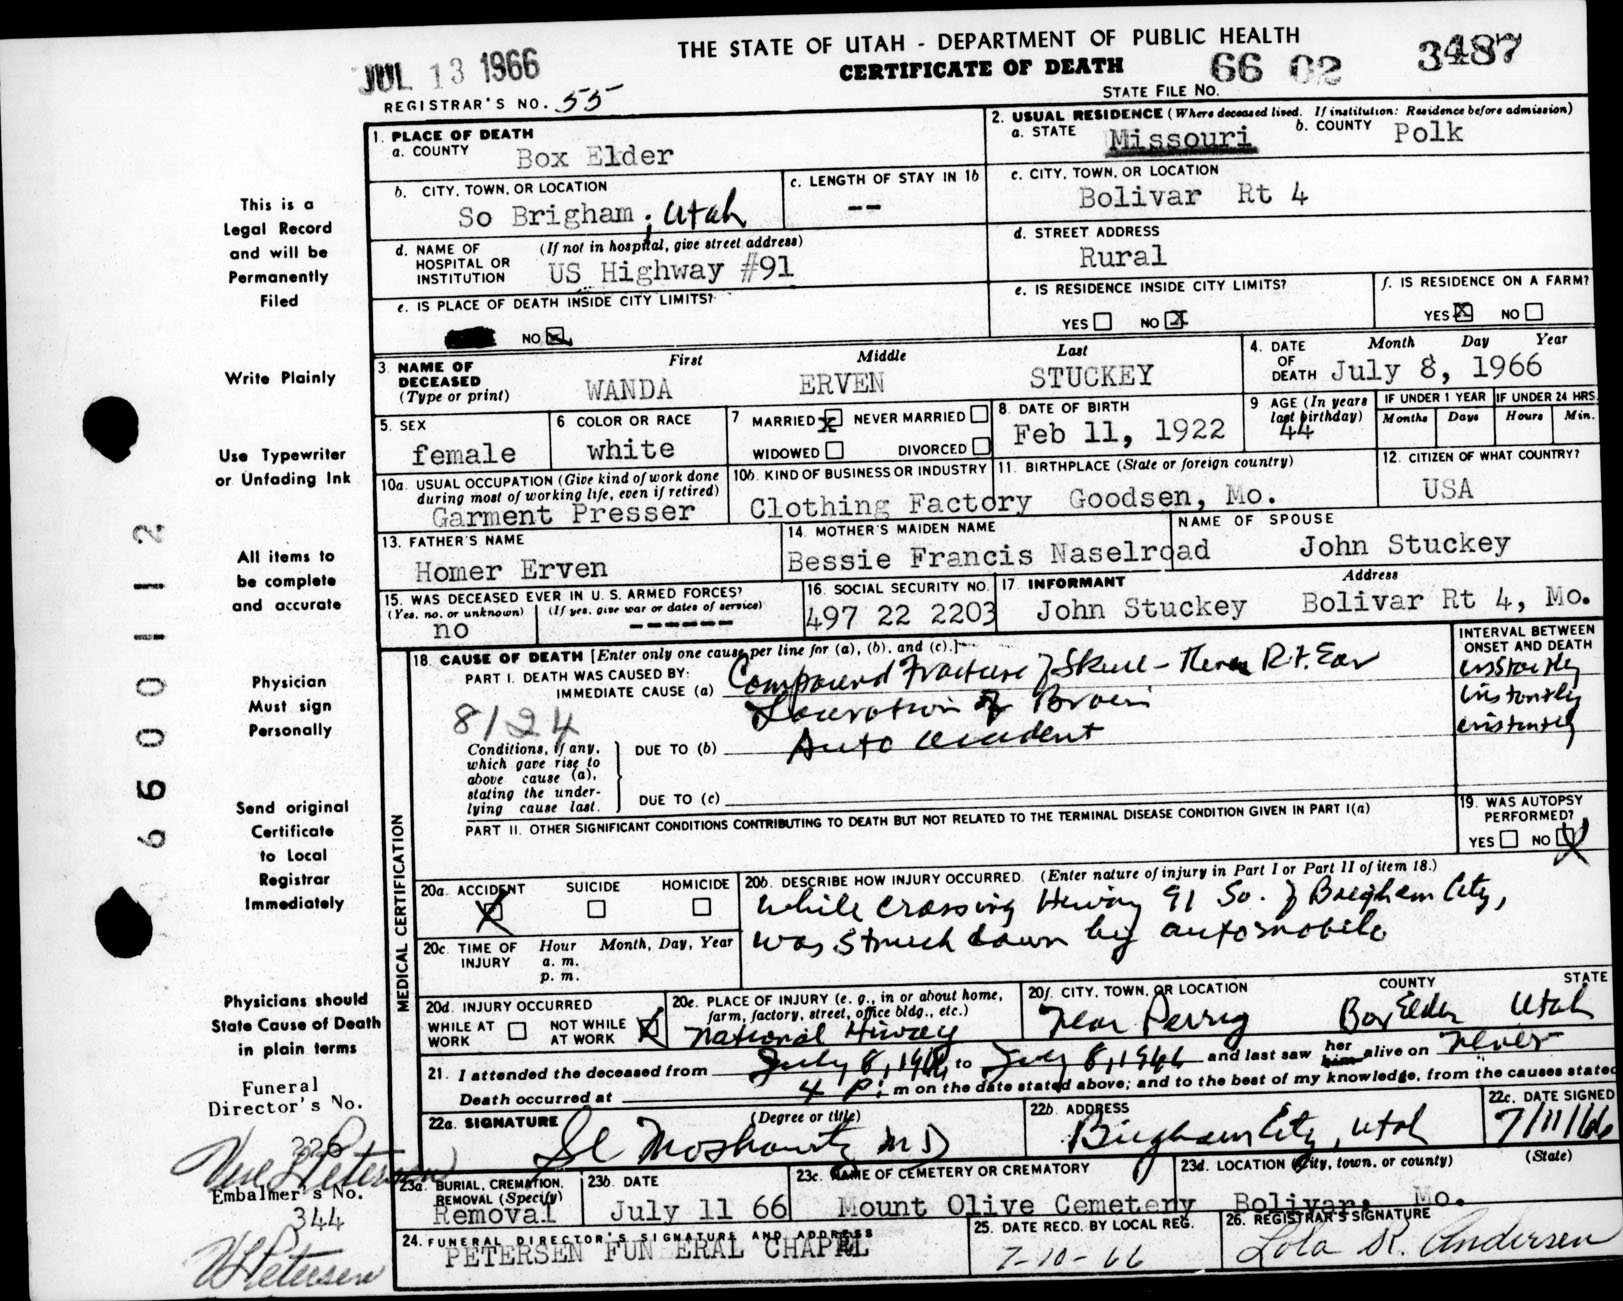 THE STATE OF UTAH - DEPARTMENT OF PUBLIC HEALTH
CERTIFICATE OF DEATH
JUL 13 1966
66 02 3487
STATE FILE NO.
REGISTRAR'S NO. 55
1. PLACE OF DEATH
a. COUNTY Box Elder
2. USUAL RESIDENCE (Where deceased lived. If institution: Residence before admission)
a. STATE Missouri b. COUNTY Polk
b. CITY, TOWN, OR LOCATION So Brigham, Utah
c. LENGTH OF STAY IN 1b --
c. CITY, TOWN, OR LOCATION Bolivar Rt 4
d. NAME OF HOSPITAL OR INSTITUTION (If not in hospital, give street address) US Highway #91
d. STREET ADDRESS Rural
e. IS PLACE OF DEATH INSIDE CITY LIMITS? NO X
e. IS RESIDENCE INSIDE CITY LIMITS? YES NO X
f. IS RESIDENCE ON A FARM? YES X NO
3. NAME OF DECEASED (Type or print)
First Middle Last
WANDA ERVEN STUCKEY
4. DATE OF DEATH Month Day Year
July 8, 1966
5. SEX female
6 COLOR OR RACE white
7 MARRIED X NEVER MARRIED WIDOWED DIVORCED
8. DATE OF BIRTH Feb 11, 1922
9 AGE (In years last birthday) 44
IF UNDER 1 YEAR Months Days
IF UNDER 24 HRS. Hours Min.
10a. USUAL OCCUPATION (Give kind of work done during most of working life, even if retired) Garment Presser
10b. KIND OF BUSINESS OR INDUSTRY Clothing Factory
11. BIRTHPLACE (State or foreign country) Goodsen, Mo.
12. CITIZEN OF WHAT COUNTRY? USA
13. FATHER'S NAME Homer Erven
14. MOTHER'S MAIDEN NAME Bessie Francis Naselroad
NAME OF SPOUSE John Stuckey
15. WAS DECEASED EVER IN U. S. ARMED FORCES?
(Yes, no, or unknown) (If yes, give war or dates of service)
no ------
16. SOCIAL SECURITY NO. 497 22 2203
17. INFORMANT Address
John Stuckey Bolivar Rt 4, Mo.
MEDICAL CERTIFICATION
18. CAUSE OF DEATH [Enter only one cause per line for (a), (b), and (c).]
INTERVAL BETWEEN ONSET AND DEATH
PART I. DEATH WAS CAUSED BY:
IMMEDIATE CAUSE (a) Compound Fracture of Skull - Rt. Ear instantly
Laceration of Brain instantly
8124
Conditions, if any, which gave rise to above cause (a), stating the underlying cause last.
DUE TO (b) Auto accident instantly
DUE TO (c)
PART II. OTHER SIGNIFICANT CONDITIONS CONTRIBUTING TO DEATH BUT NOT RELATED TO THE TERMINAL DISEASE CONDITION GIVEN IN PART I(a)
19. WAS AUTOPSY PERFORMED? YES NO X
20a. ACCIDENT X SUICIDE HOMICIDE
20b. DESCRIBE HOW INJURY OCCURRED. (Enter nature of injury in Part I or Part II of item 18.)
While crossing Hiway 91 So. of Brigham City,
was struck down by automobile
20c. TIME OF INJURY Hour Month, Day, Year
a. m.
p. m.
20d. INJURY OCCURRED
WHILE AT WORK NOT WHILE AT WORK X
20e. PLACE OF INJURY (e. g., in or about home, farm, factory, street, office bldg., etc.)
National Hiway
20f. CITY, TOWN, OR LOCATION COUNTY STATE
Near Perry Box Elder Utah
21. I attended the deceased from July 8, 1966 to July 8, 1966 and last saw her him alive on Never
Death occurred at 4 P. m on the date stated above; and to the best of my knowledge, from the causes stated
22a. SIGNATURE (Degree or title) Moskowitz MD
22b. ADDRESS Brigham City, Utah
22c. DATE SIGNED 7/11/66
23a. BURIAL, CREMATION, REMOVAL (Specify) Removal
23b. DATE July 11 66
23c. NAME OF CEMETERY OR CREMATORY Mount Olive Cemetery
23d. LOCATION (City, town, or county) (State) Bolivar, Mo.
24. FUNERAL DIRECTOR'S SIGNATURE AND ADDRESS
PETERSEN FUNERAL CHAPEL
25. DATE RECD. BY LOCAL REG. 7-10-66
26. REGISTRAR'S SIGNATURE Lola R. Andersen
This is a
Legal Record
and will be
Permanently
Filed
Write Plainly
Use Typewriter
or Unfading Ink
All items to
be complete
and accurate
Physician
Must sign
Personally
Send original
Certificate
to Local
Registrar
Immediately
Physicians should
State Cause of Death
in plain terms
Funeral
Director's No.
226
Petersen
Embalmer's No.
344
Petersen
66001112